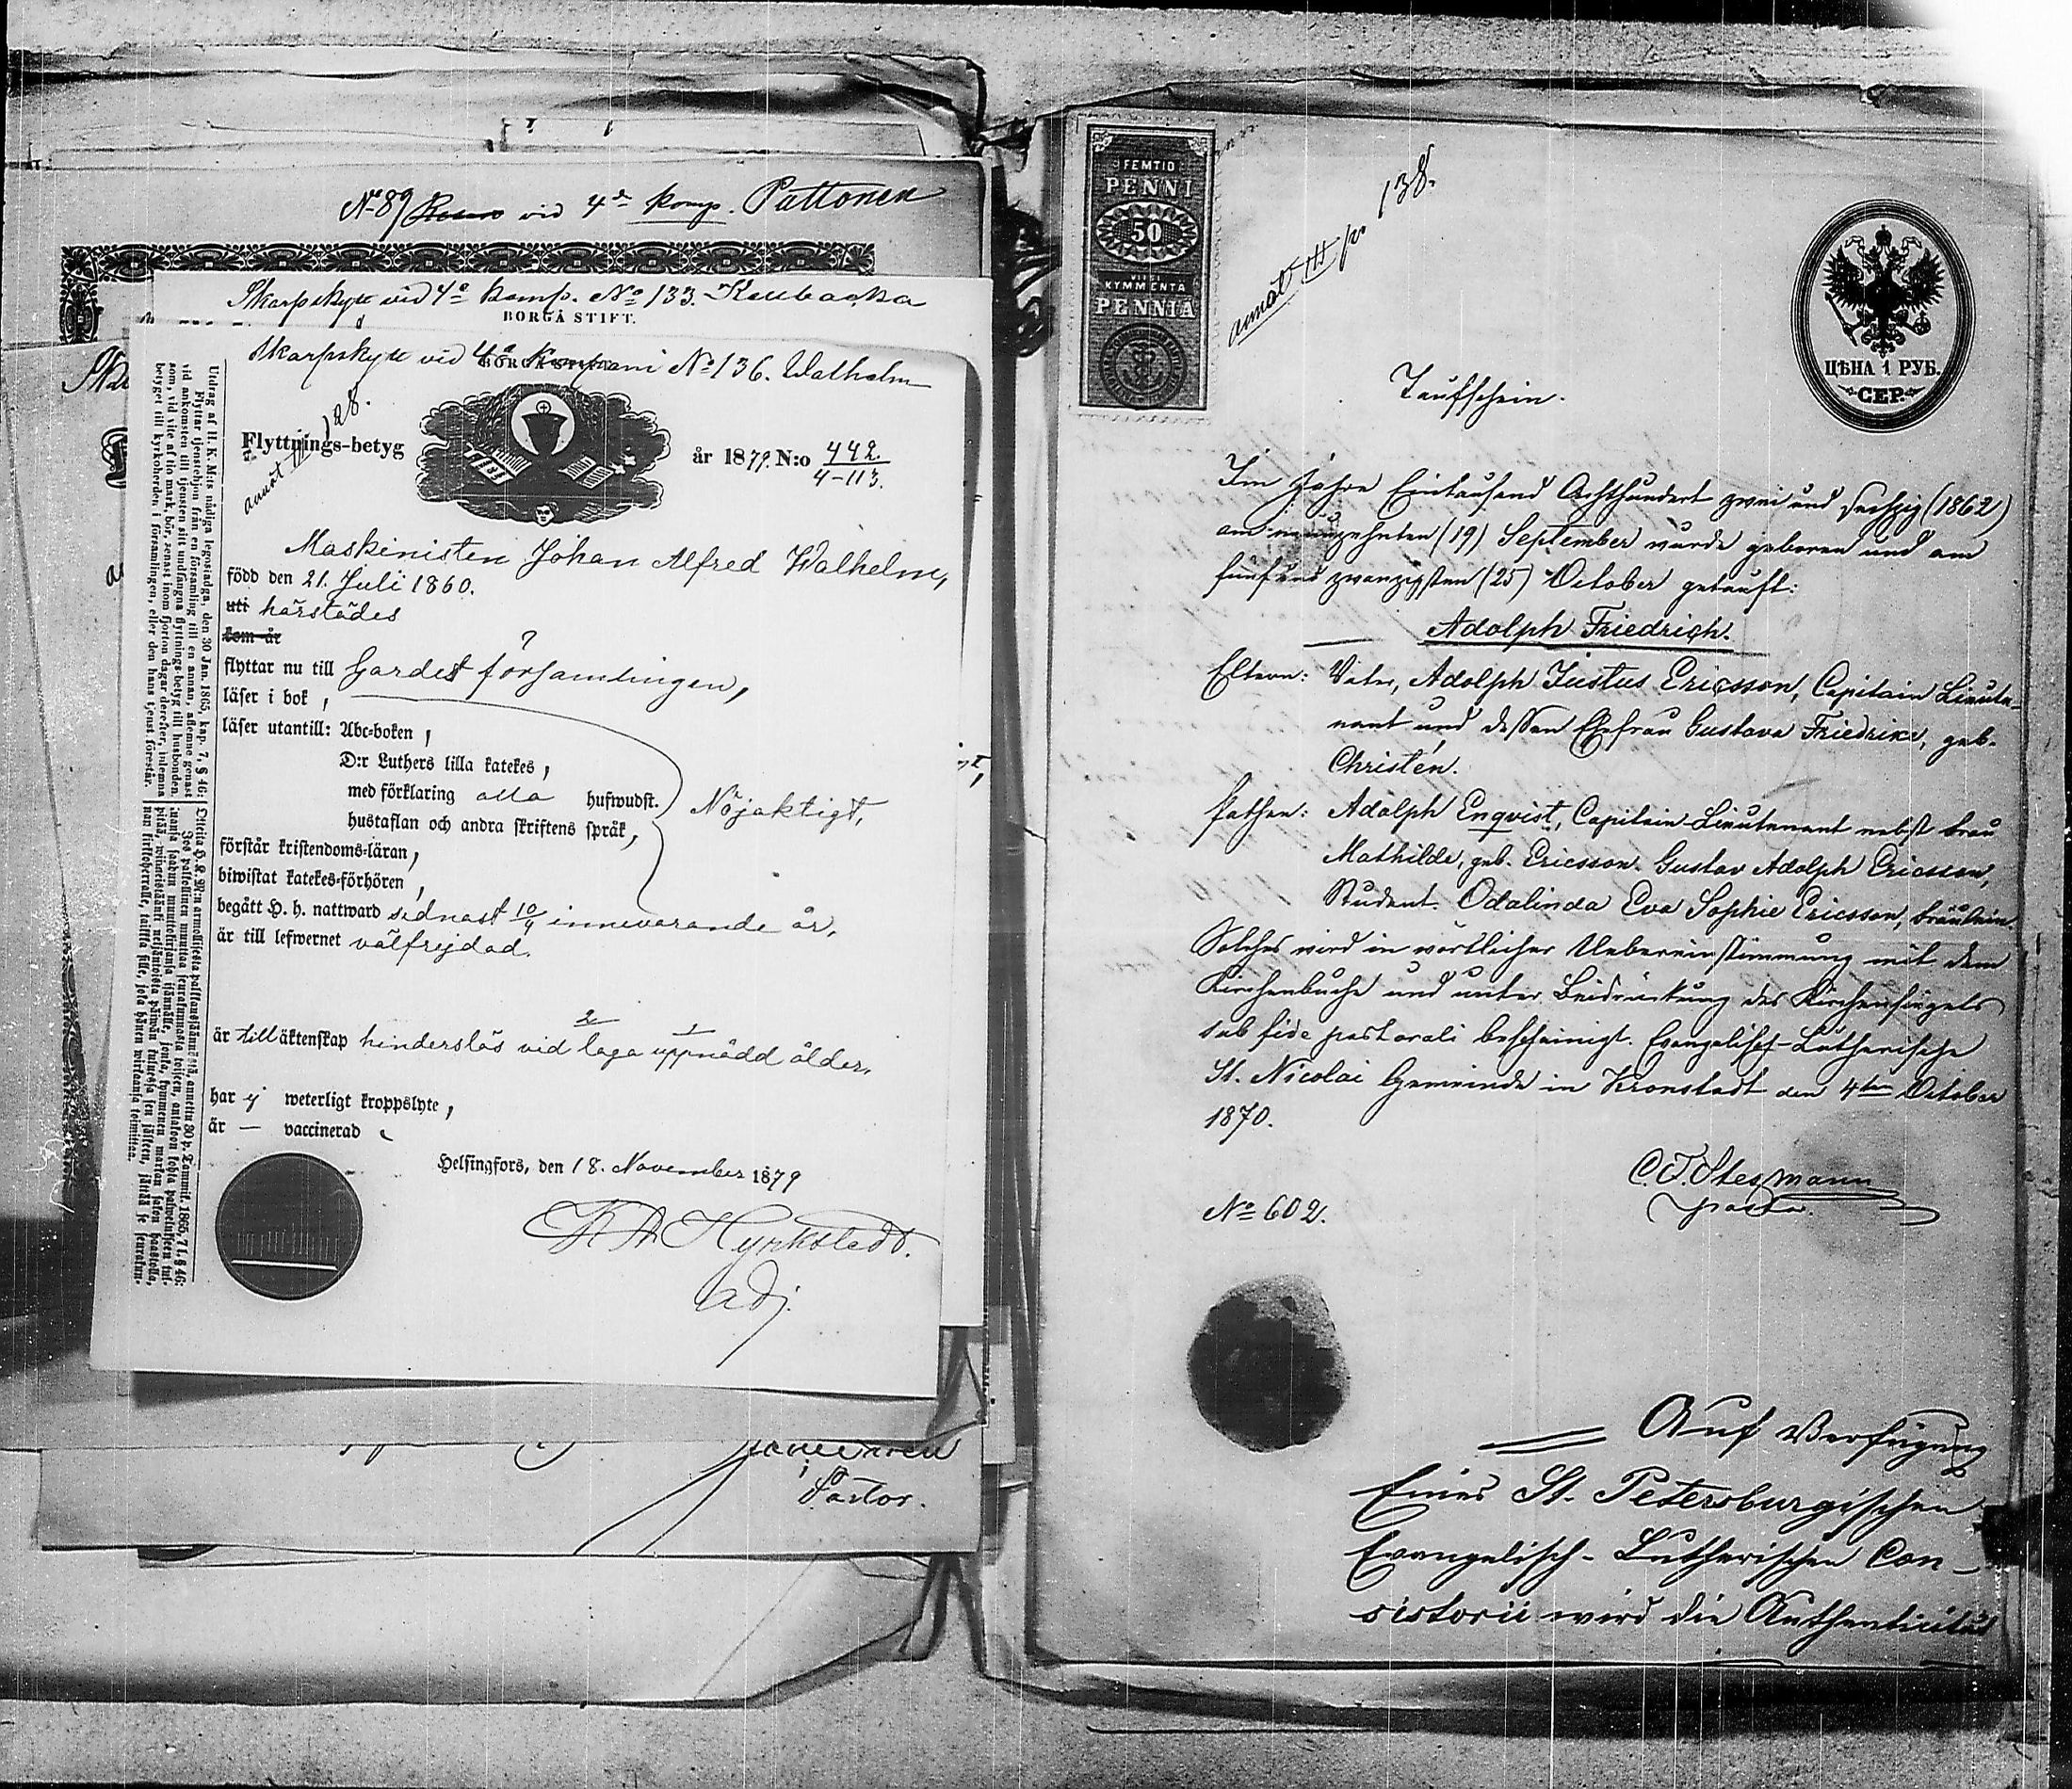 No 89 vid 4de komp. Pattonen
Skarpskytt vid 4e komp. No 133. Keubacka
BORGÅ STIFT.
Skarpskytt vid 4e Kompani No 136. Walhelm
BORGÅ STIFT.
annot. III 128.
Flyttnings-betyg
år 1879. N:o 442.
4-113.
Maskinisten Johan Alfred Walhelm,
född den 21. Juli 1860.
uti härstädes
kom år
flyttar nu till Gardets församlingen,
läser i bok,
läser utantill: Abc-boken,
D:r Luthers lilla katekes,
med förklaring alla hufwudst.
Nöjaktigt,
hustaflan och andra skriftens språk,
förstår kristendoms-läran,
biwistat katekes-förhören,
begått H. h. nattward sednast 10/4 innevarande år,
är till lefwernet välfrejdad.
är till äktenskap hinderslös vid laga uppnådd ålder,
har ej weterligt kroppslyte,
är — vaccinerad
Helsingfors, den 18. November 1879
K A Hyrkstedt.
Adj.
Utdrag af H. K. M:ts nådiga legostadga, den 30 Jan. 1865, kap. 7, § 46:
Flyttar tjenstehjon från en församling till en annan, aflemne genast
vid ankomsten till tjensten sitt undfångna flyttnings-betyg till husbonden,
som, vid vite af tio mark, bör, senast inom fjorton dagar derefter, inlemna
betyget till kyrkoherden i församlingen, eller den hans tjenst förestår.
Pastor.
FEMTIO
PENNI
50
VIISI
KYMMENTÄ
PENNIÄ
annot III p. 138.
ЦѢНА 1 РУБ.
СЕР.
Taufschein.
Im Jahre Eintausend Achthundert zwei und sechzig (1862)
am neunzehnten (19) September wurde geboren und am
fünf und zwanzigsten (25) October getauft:
Adolph Friedrich.
Eltern: Vater, Adolph Justus Ericsson, Capitain Lieute-
nant und dessen Ehefrau Gustava Friedrike, geb.
Christén.
Pathen: Adolph Enqvist, Capitain-Lieutenant nebst Frau
Mathilde, geb. Ericsson. Gustav Adolph Ericsson,
Student. Odalinda Eva Sophie Ericsson, Fräulein.
Solches wird in wörtlicher Uebereinstimmung mit dem
Kirchenbuche und unter Beidrückung des Kirchensiegels
sub fide pastorali bescheinigt. Evangelisch-Lutherische
St. Nicolai Gemeinde in Kronstadt den 4ten October
1870.
Pastor.
No 602.
Auf Verfügung
Eines St. Petersburgischen
Evangelisch-Lutherischen Con-
sistorii wird die Authenticität